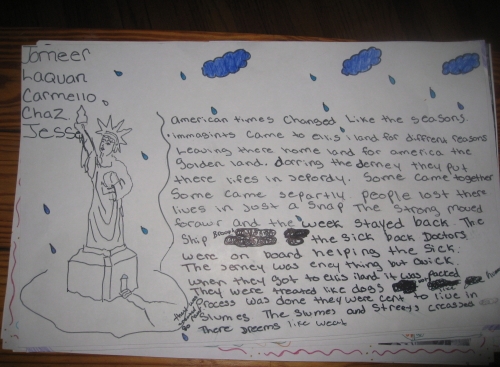 Jameer
Laquan
Carmello
Chaz
Jesse
american times changed Like the seasons.
immagints came to ellis iland for diffrent reasons
Leaving there home land for america the
golden land. Dorring the derney they put
there lifes in Jeperdy. Some came together
Some came sepertly people lost there
lives in Just a snap The strong moved
forawr and the week stayed back. The
Ship the sick back Doctors
were on board helping the sick.
The Jerney was eney thing but Quick.
when they got to ellis iland it was packed
They were treated like dogs
Process was done they were cent to live in
Slumes The Slumes and Streeys creassed
There Dreems like weat